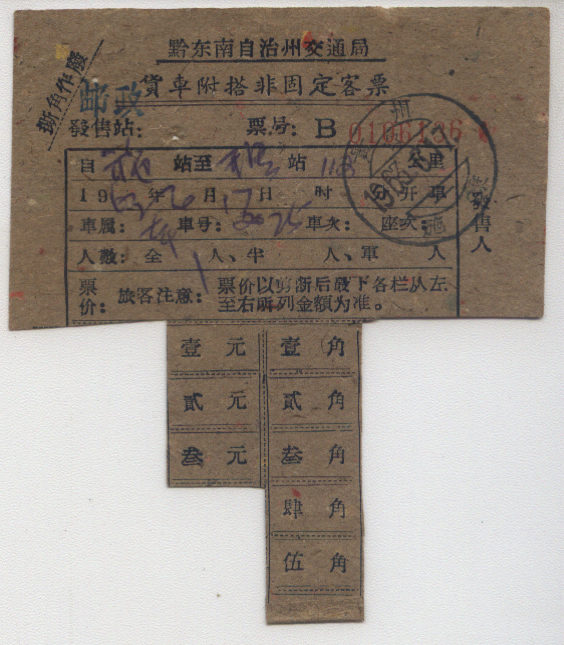 黔东南自治州交通局
撕角作廢
邮政
貨車附搭非固定客票
發售站：
票号：B 0106106
自 站至 站 118 公里
19 63年 6月 17日 时 分开車
車属： 車号： 25 車次： 座次：
發售人
人数：全 1 人、半 人、軍 人
票价：
旅客注意：
票价以剪断后殘下各栏从左
至右所列金額为准。
壹元 壹角
貳元 貳角
叁元 叁角
肆角
伍角
州
施